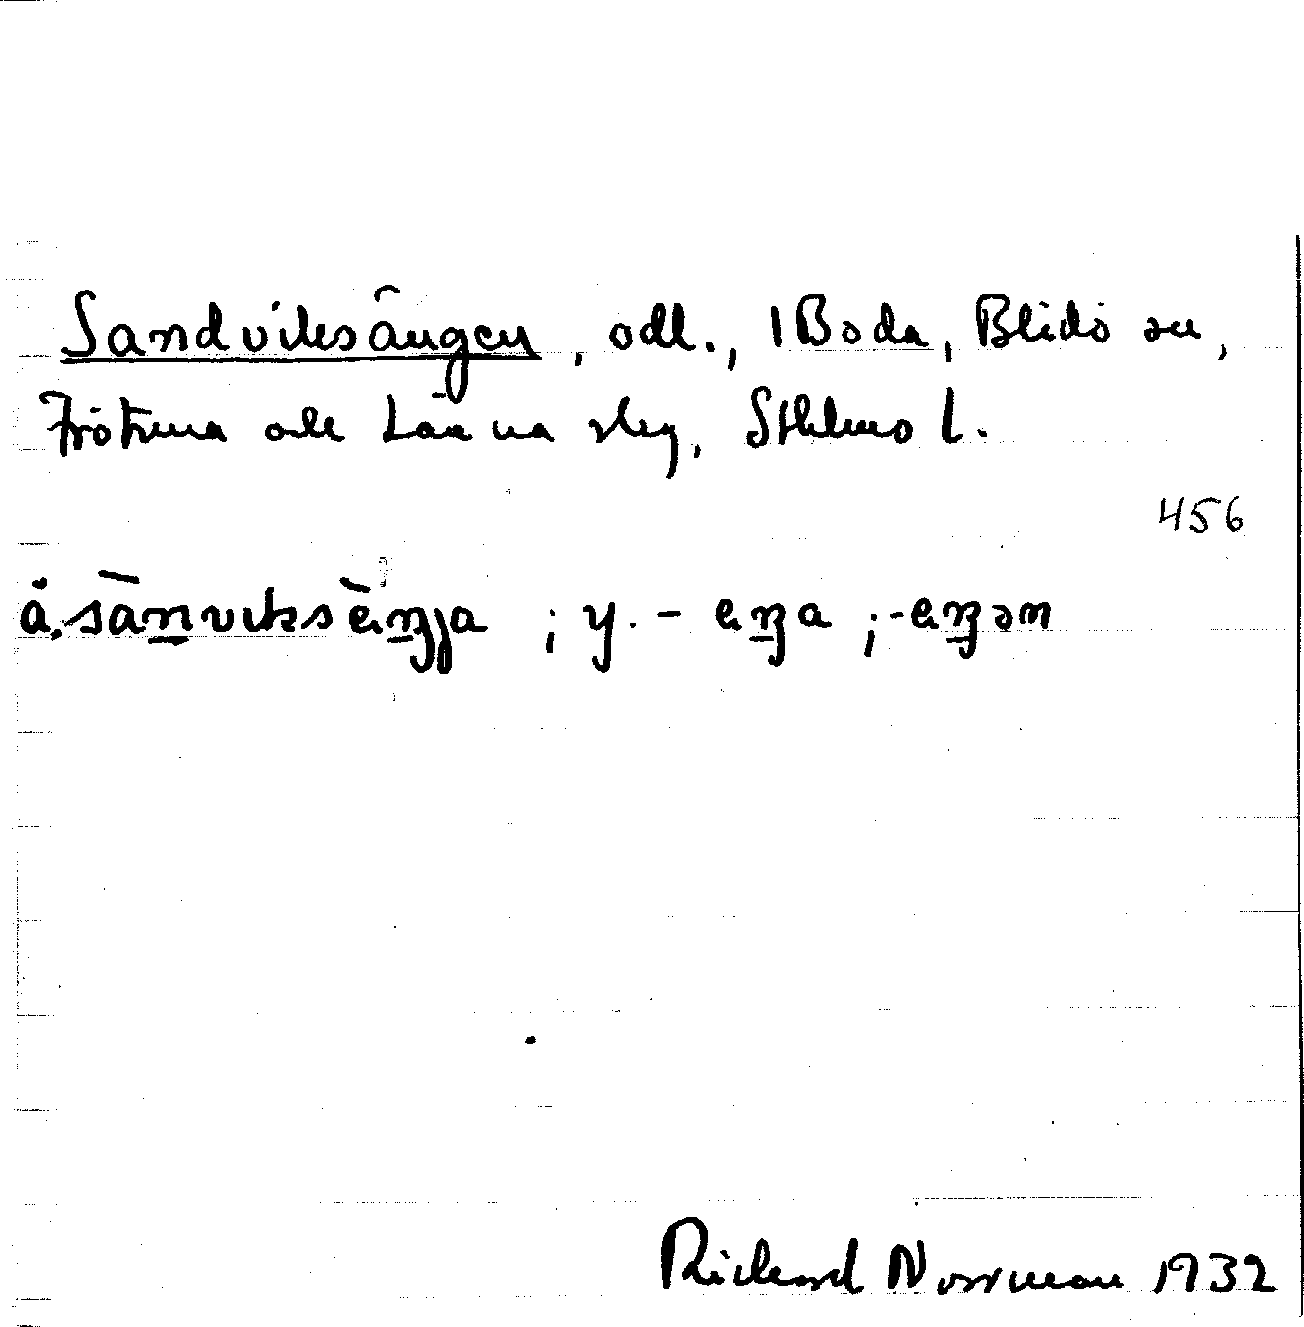 Sandviksängen, odl., 1 Boda, Blidö sn,
Frötuna och Länna skg, Sthlms l.
456
ä. sànviksèŋja ; y. - eŋa ; -eŋən
Richard Norrman 1932